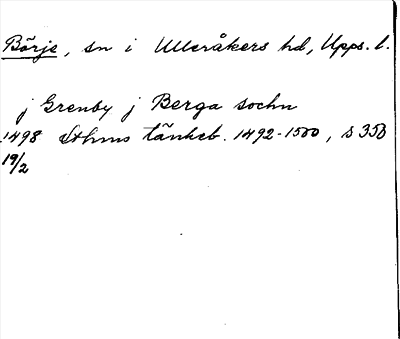 Börje, sn i Ulleråkers hd, Upps. l.
j Grenby j Berga sochn
1498 Sthms tänkeb. 1492-1500, s 358
19/2